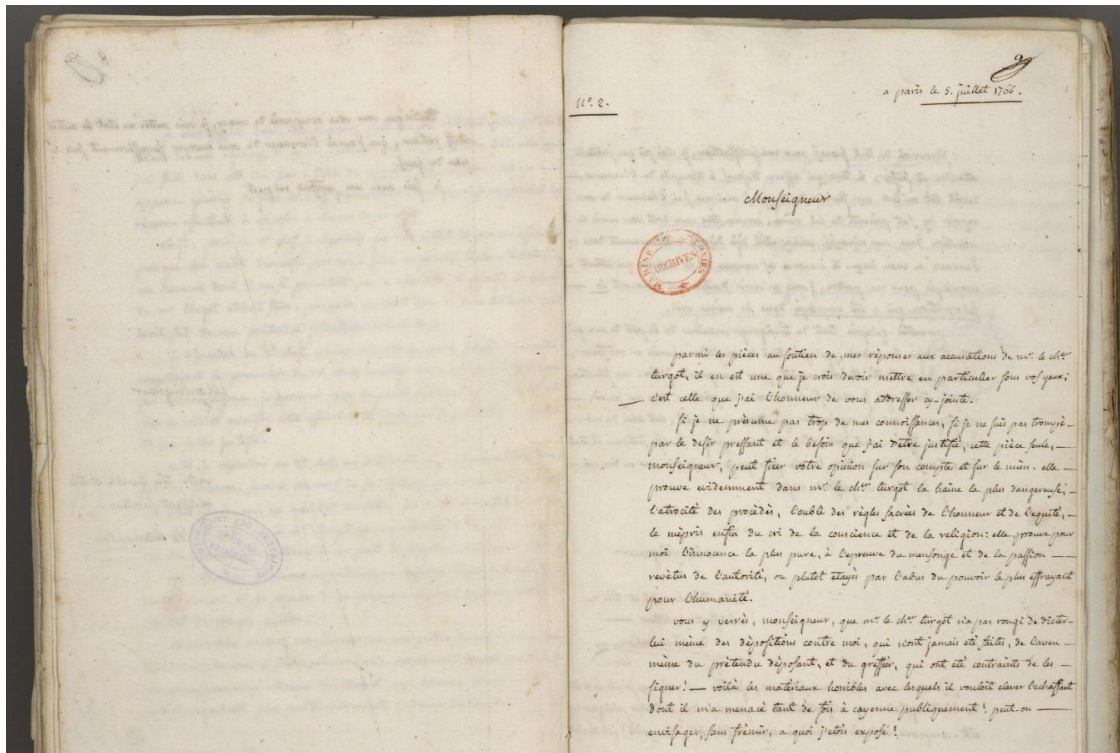 N.º 2.
a paris le 5. juillet 1766.
Monseigneur
MARINE ET COLONIES
ARCHIVES
parmi les pièces au soutien de mes rèponses aux accusations de mr. le ch.er
turgot, il en est une que je crois devoir mettre en particulier sous vos yeux;
c'est celle que j'ai l'honneur de vous addresser cy-jointe.
Si je ne prèsume pas trop de mes connoissances, si je ne suis pas trompé
par le desir pressant et le besoin que j'ai d'etre justifié, cette pièce seule,
monseigneur, peut fixer votre opinion sur son compte et sur le mien. elle
prouve evidemment dans mr. le ch.er turgot la haine la plus dangereuse,
l'atrocité des procèdés, l'oubli des règles sacrées de l'honneur et de l'equité,
le mèpris enfin du cri de la conscience et de la religion: elle prouve pour
moi l'innocence la plus pure, à l'epreuve du mensonge et de la passion
revètus de l'autorité, ou plutot etayés par l'abus du pouvoir le plus effrayant
pour l'humanité.
vous y verrés, monseigneur, que mr. le ch.er turgot n'a pas rougi de dicter
lui mème des dèpositions contre moi, qui n'ont jamais été faites, de l'aveu
mème du prètendu dèposant, et du greffier, qui ont eté contraints de les
signer! — voilà les matèriaux horribles avec lesquels il vouloit elever l'echaffaut
dont il m'a menacé tant de fois à cayenne publiquement! peut-on
envisager, sans frèmir, a quoi j'etois exposé!